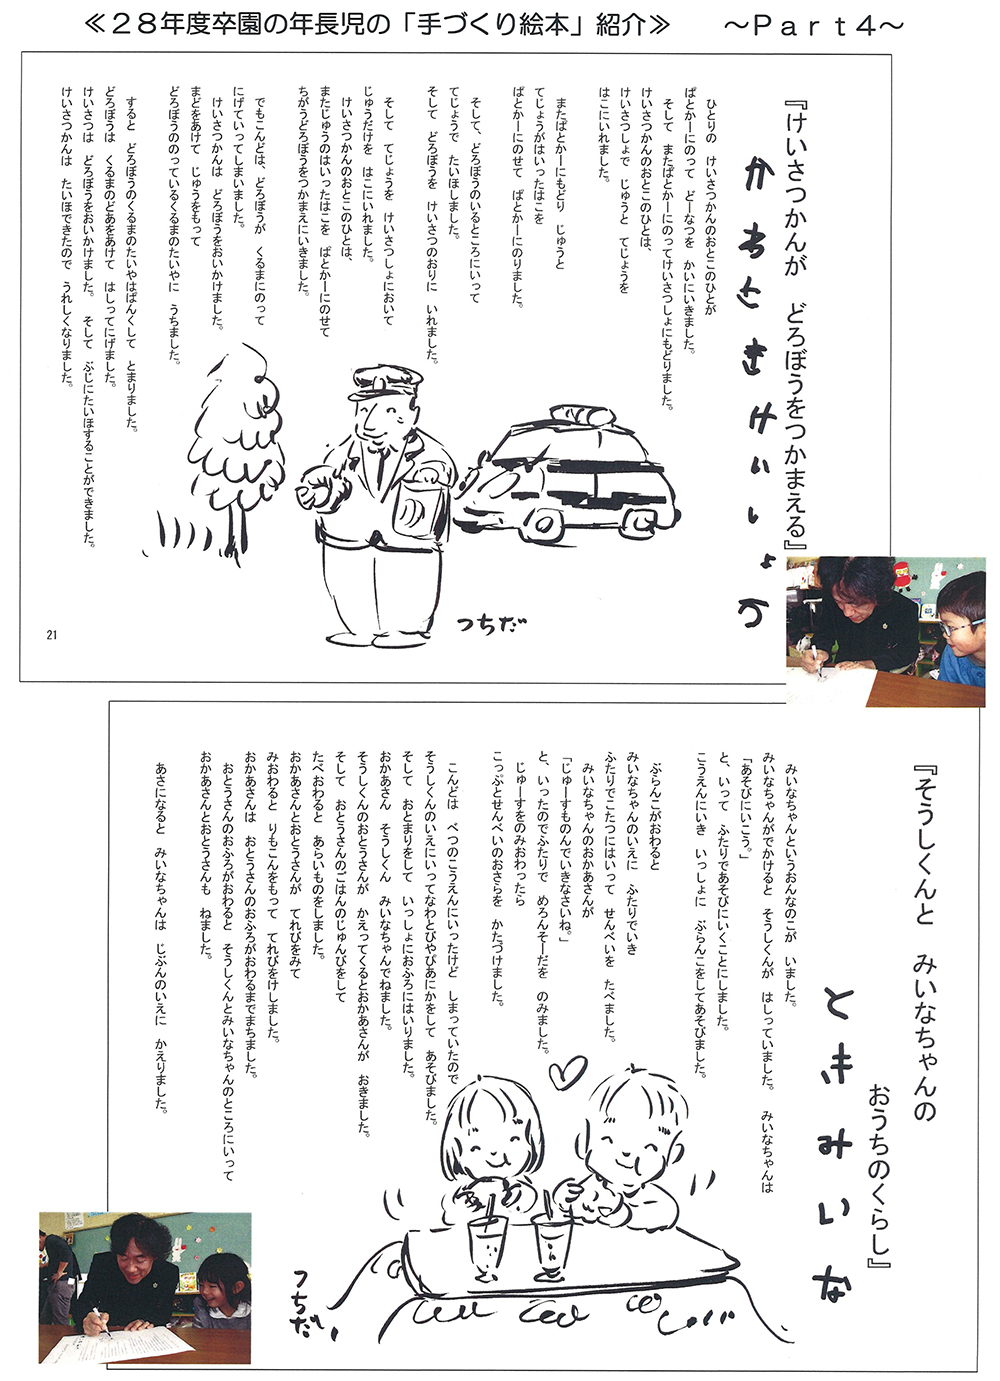 ≪２８年度卒園の年長児の「手づくり絵本」紹介≫　　～Ｐａｒｔ４～
『けいさつかんが　どろぼうをつかまえる』
かわさきけいしょう
ひとりの　けいさつかんのおとこのひとが
ぱとかーにのって　どーなつを　かいにいきました。
そして　またぱとかーにのってけいさつしょにもどりました。
けいさつかんのおとこのひとは、
けいさつしょで　じゅうと　てじょうを
はこにいれました。
またぱとかーにもどり　じゅうと
てじょうがはいったはこを
ぱとかーにのせて　ぱとかーにのりました。
そして、どろぼうのいるところにいって
てじょうで　たいほしました。
そして　どろぼうを　けいさつのおりに　いれました。
そして　てじょうを　けいさつしょにおいて
じゅうだけを　はこにいれました。
けいさつかんのおとこのひとは、
またじゅうのはいったはこを　ぱとかーにのせて
ちがうどろぼうをつかまえにいきました。
でもこんどは、どろぼうが　くるまにのって
にげていってしまいました。
けいさつかんは　どろぼうをおいかけました。
まどをあけて　じゅうをもって
どろぼうののっているくるまのたいやに　うちました。
すると　どろぼうのくるまのたいやはぱんくして　とまりました。
どろぼうは　くるまのどあをあけて　はしってにげました。
けいさつは　どろぼうをおいかけました。　そして　ぶじにたいほすることができました。
けいさつかんは　たいほできたので　うれしくなりました。
つちだ
21
『そうしくんと　みいなちゃんの
おうちのくらし』
ときみいな
みいなちゃんというおんなのこが　いました。
みいなちゃんがでかけると　そうしくんが　はしっていました。　みいなちゃんは
「あそびにいこう。」
と、いって　ふたりであそびにいくことにしました。
こうえんにいき　いっしょに　ぶらんこをしてあそびました。
ぶらんこがおわると
みいなちゃんのいえに　ふたりでいき
ふたりでこたつにはいって　せんべいを　たべました。
みいなちゃんのおかあさんが
「じゅーすものんでいきなさいね。」
と、いったのでふたりで　めろんそーだを　のみました。
じゅーすをのみおわったら
こっぷとせんべいのおさらを　かたづけました。
こんどは　べつのこうえんにいったけど　しまっていたので
そうしくんのいえにいってなわとびやぴあにかをして　あそびました。
そして　おとまりをして　いっしょにおふろにはいりました。
おかあさん　そうしくん　みいなちゃんでねました。
そうしくんのおとうさんが　かえってくるとおかあさんが　おきました。
そして　おとうさんのごはんのじゅんびをして
たべおわると　あらいものをしました。
おかあさんとおとうさんが　てれびをみて
みおわると　りもこんをもって　てれびをけしました。
おかあさんは　おとうさんのおふろがおわるまでまちました。
おとうさんのおふろがおわると　そうしくんとみいなちゃんのところにいって
おかあさんとおとうさんも　ねました。
あさになると　みいなちゃんは　じぶんのいえに　かえりました。
つちだ